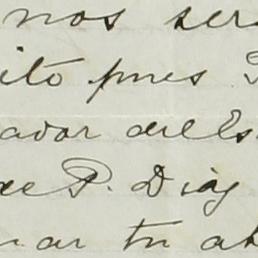 nos ser
ito pues
ador del Es
de P. Diaz
nar tu at